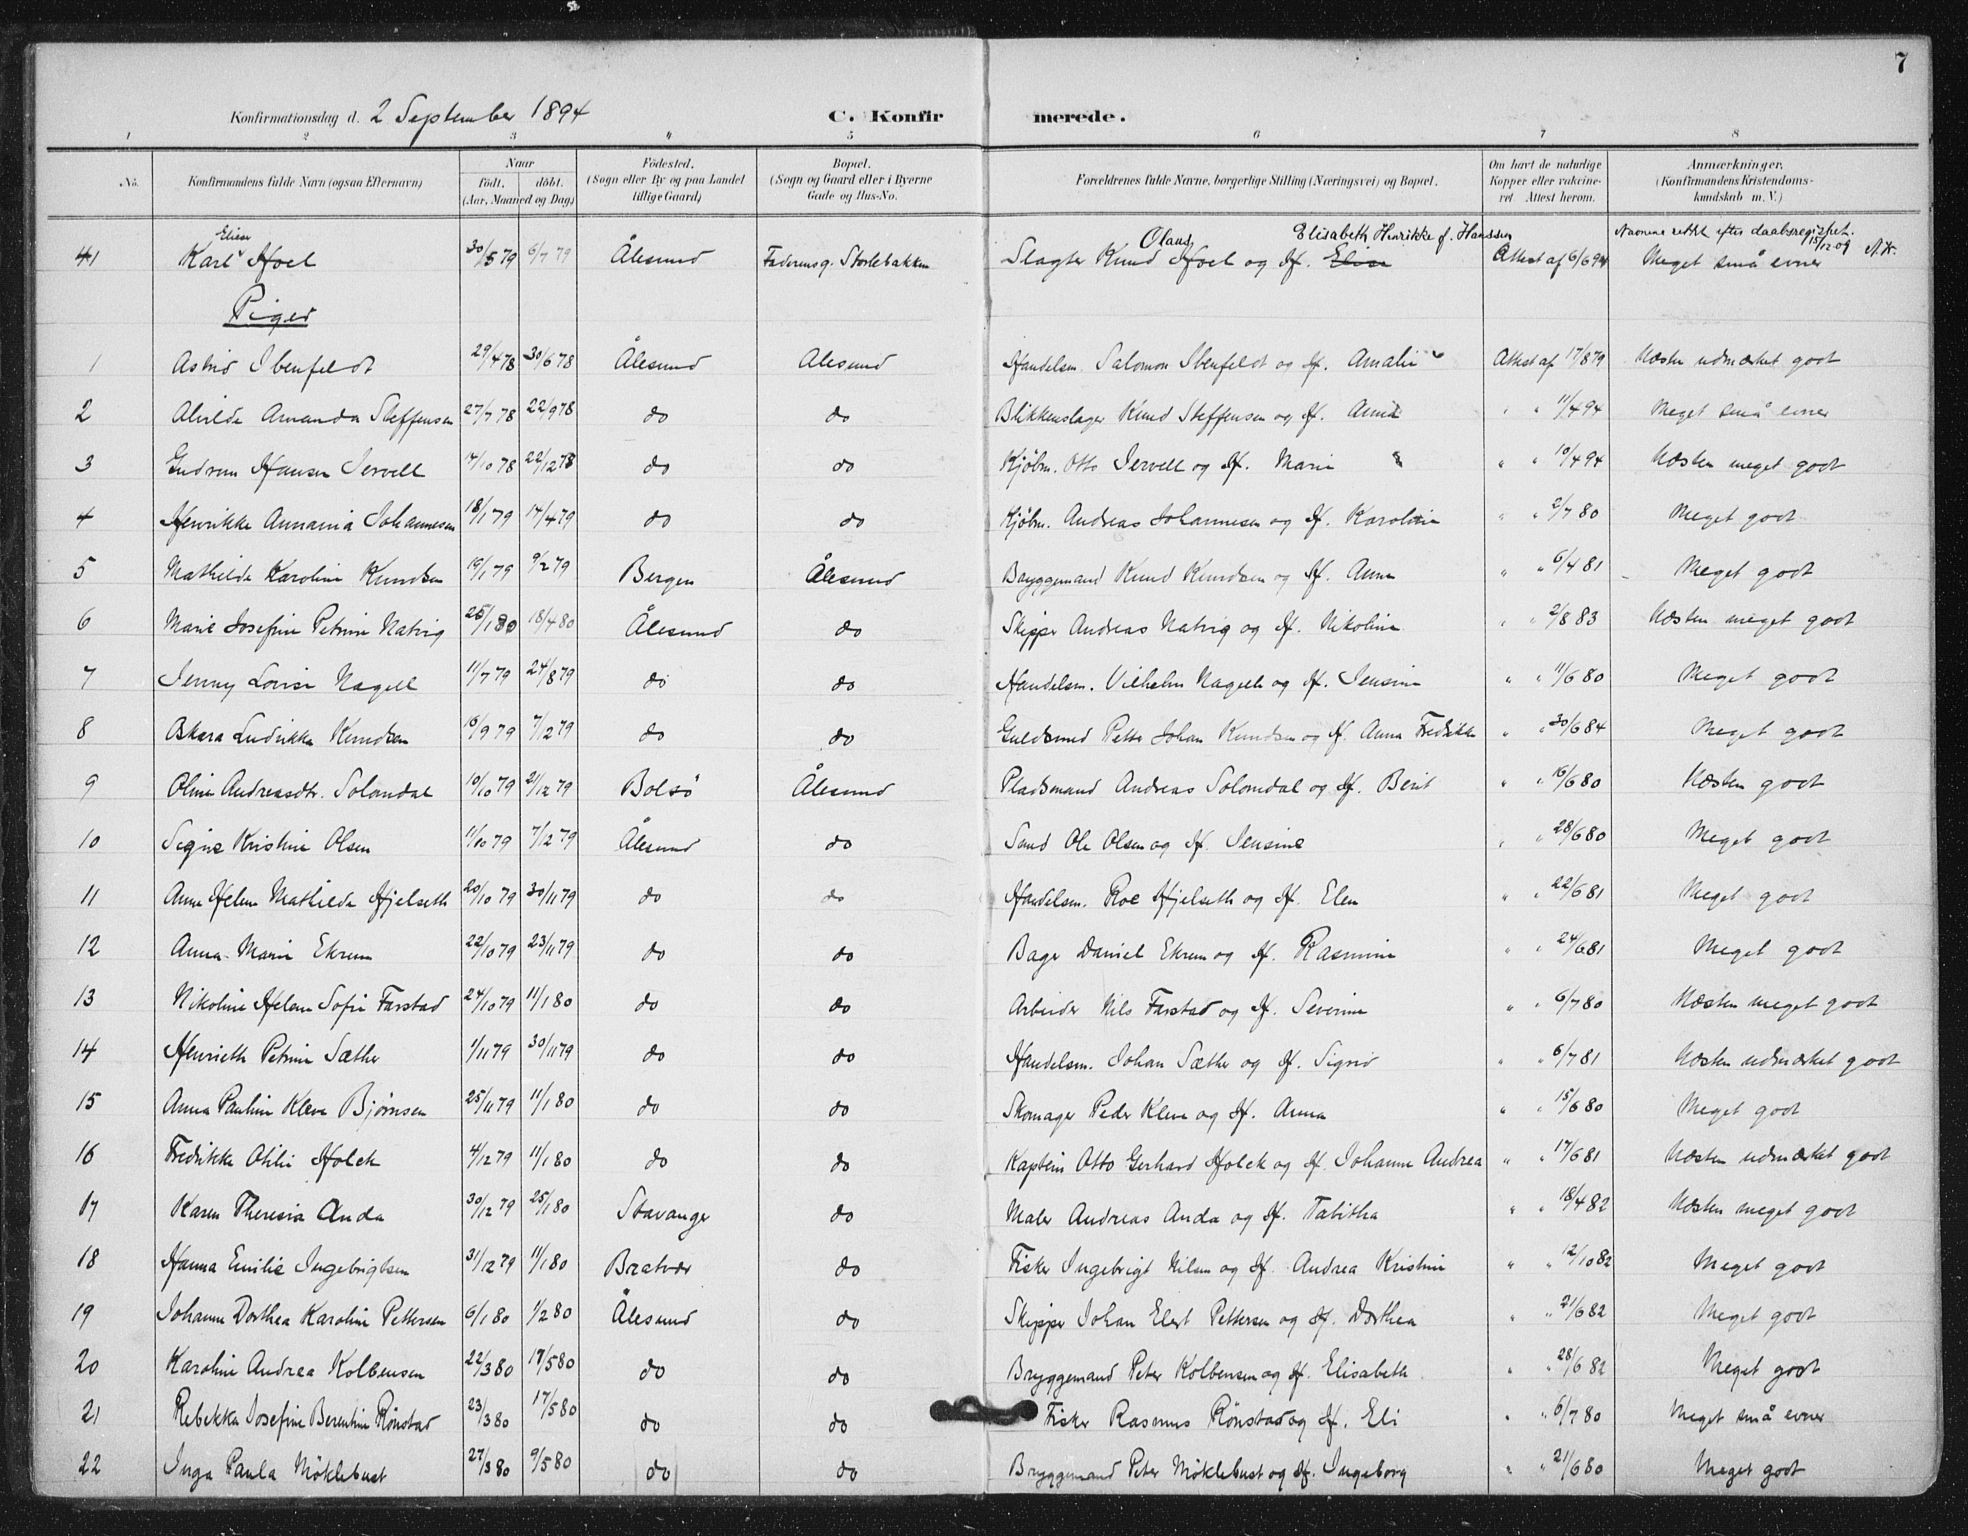 7
Konfirmationsdag d. 2 September 1894 C. Konfir merede.
1 2 3 " 5 6 7 8
No. Konfirmandens fulde Navn (ogsaa Efternavn) Naar födt. döbt. (Aar, Maaned og Dag) Födested. (Sogn eller By og paa Landet tillige Gaard) Bopæl. (Sogn og Gaard eller i Byerne Gade og Hus-No. Forældrenes fulde Navne, borgerlige Stilling (Næringsvei) og Bopæl. Om havt de naturlige Kopper eller vakcineret. Attest herom. Anmærkninger. (Konfirmandens Kristendomskundskab m. V.)
Eliese Olaus Elisabeth Henrikke f. Hanssen Navnene rettet efter daabsregistret. 15/12 09 N.K.
41 Karl Hoel 30/5 79 6/7 79 Ålesund Storlebakken Slagter Knud Hoel og H. Elise Attest af 6/6 94 Meget små evner
Piger
1 Astrid Ibenfeldt 29/4 78 30/6 78 Ålesund Alesund Handelsm. Salomon Ibenfeldt og H. Amalie Attest af 17/8 79 Næsten udmærket godt
2 Alvilde Amanda Steffensen 27/7 78 22/9 78 do do Blikkenslager Knud Steffensen og H. Anna " " 11/4 94 Meget små evner
3 Gudrun Hansen Jervell 14/10 78 22/12 78 do do Kjöbm. Otto Jervell og H. Marie " " 10/4 94 Næsten meget godt
4 Henrikke Annania Johannesen 18/1 79 14/4 79 do do Kjöbm. Andreas Johannesen og H. Karoline " " 2/7 80 Meget godt
5 Mathilde Karoline Knudsen 19/1 79 9/2 79 Bergen Ålesund Bryggemand Knud Knudsen og H. Anna " " 6/4 81 Meget godt
6 Marie Josefine Petrine Natvig 25/1 80 18/4 80 Ålesund do Skipper Andreas Natvig og H. Nikoline " " 2/8 83 Næsten meget godt
7 Jenny Lovise Nagell 11/7 79 24/8 79 do do Handelsm. Vilhelm Nagell og H. Jensine " " 11/6 80 Meget godt
8 Askara Ludvikka Knudsen 16/9 79 7/12 79 do do Guldsmed Petter Johan Knudsen og H. Anna Fredrikke " " 30/6 84 Meget godt
9 Oline Andreasdtr. Solemdal 10/10 79 21/12 79 Bolsö Ålesund Pladsmand Andreas Solemdal og H. Berit " " 16/6 80 Næsten godt
10 Signe Kristine Olsen 11/10 79 7/12 79 Ålesund do Smed Ole Olsen og H. Jensine " " 28/6 80 Meget godt
11 Anna Helene Mathilde Hjelseth 20/10 79 30/11 79 do do Handelsm. Roe Hjelseth og H. Elen " " 22/6 81 Meget godt
12 Anna Marie Ekrem 22/10 79 23/11 79 do do Bager Daniel Ekrem og H. Rasmine " " 24/6 81 Meget godt
13 Nikoline Helene Sofie Farstad 24/10 79 11/1 80 do do Arbeider Nils Farstad og H. Severine " " 6/7 80 Næsten meget godt
14 Henrieth Petrine Sæther 1/11 79 30/11 79 do do Handelsm. Johan Sæther og H. Sigrid " " 6/7 81 Næsten udmærket godt
15 Anna Pauline Kleve Bjørnsen 25/11 79 11/1 80 do do Skomager Peder Kleve og H. Anna " " 15/6 80 Meget godt
16 Fredrikke Otilie Holck 4/12 79 11/1 80 do do Kaptein Otto Gerhard Holck og H. Johanne Andrea " " 17/6 81 Næsten udmærket godt
17 Karen Theresia Anda 30/12 79 25/1 80 Stavanger do Maler Andreas Anda og H. Tabitha " " 18/4 82 Næsten meget godt
18 Hanna Emilie Ingebrigtsen 31/12 79 11/1 80 Bratvær do Fisker Ingebrigt Nilsen og H. Andrea Kristine " " 12/10 82 Meget godt
19 Johanne Dorthea Karoline Pettersen 6/1 80 1/2 80 Ålesund do Skipper Johan Elert Pettersen og H. Dorthea " " 21/6 82 Meget godt
20 Karoline Andrea Kolbensen 22/3 80 17/5 80 do do Bryggemand Peter Kolbensen og H. Elisabeth " " 28/6 82 Meget godt
21 Rebekka Josefine Berentine Rönstad 23/3 80 17/5 80 do do Fisker Rasmus Rönstad og H. Eli " " 6/7 80 Meget små evner
22 Inga Paula Möklebust 27/3 80 9/5 80 do do Bryggemand Peter Möklebust og H. Ingeborg " " 21/6 80 Meget godt